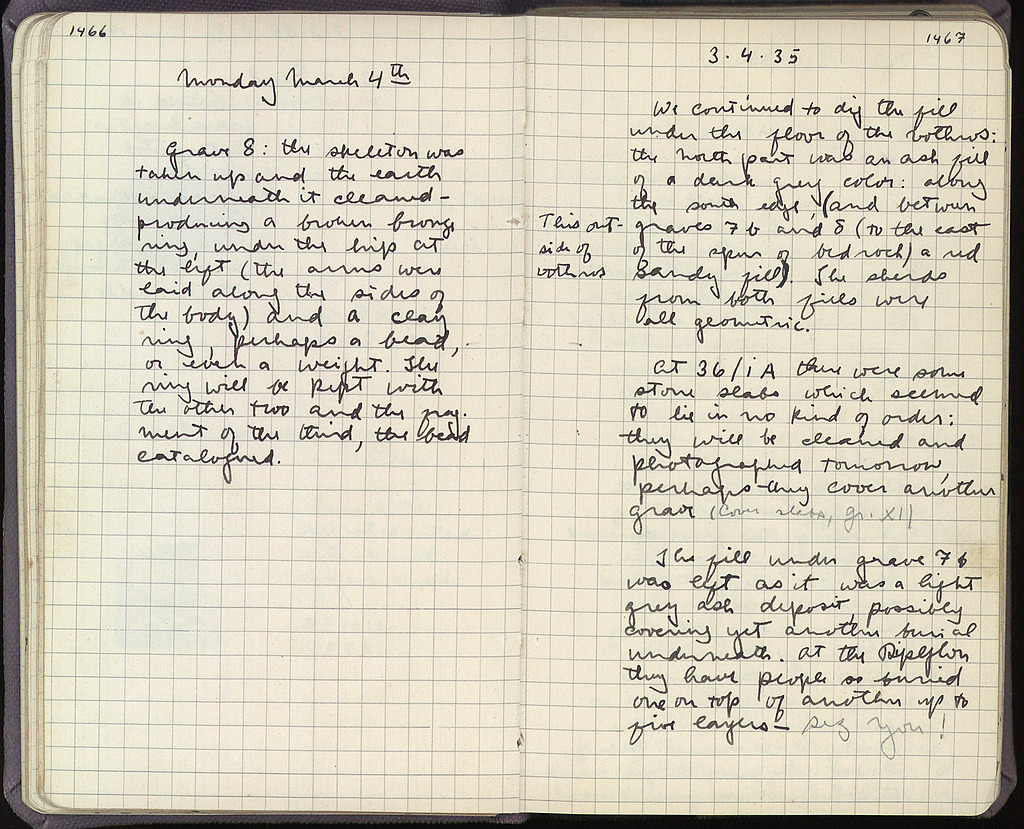 1466
Monday March 4th
Grave 8: the skeleton was
taken up and the earth
underneath it cleaned -
producing a broken bronze
ring, under the hip at
the left (the arms were
laid along the sides of
the body) and a clay
ring, perhaps a bead,
or even a weight. The
ring will be kept with
the other two and the frag-
ment of the third, the bead
catalogued.
1467
3.4.35
We continued to dig the fill
under the floor of the bothros:
the north part was an ash fill
of a dark grey color: along
the south edge, (and between
graves 7b and 8 (to the east
of the spur of bedrock) a red
sandy fill). The sherds
from both fills were
all geometric.
This out-
side of
bothros
At 36/iA there were some
stone slabs which seemed
to lie in no kind of order:
they will be cleaned and
photographed tomorrow,
perhaps they cover another
grave (Cover slabs, gr. XI)
The fill under grave 7b
was left as it was a light
grey ash deposit, possibly
covering yet another burial
underneath. At the Dipylon
they have people so buried
one on top of another up to
five layers - sez you!